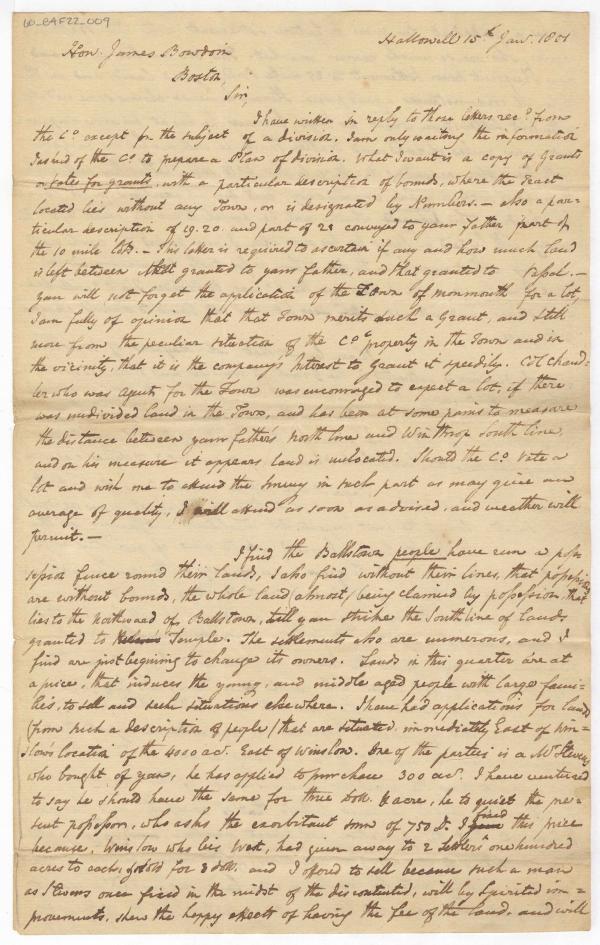 60_BAF22_009
Hallowell 15th Jany. 1801
Hon. James Bowdoin
Boston,
Sir,
I have written in reply to those letters recd. from
the Co. except for the subject of a division. I am only waiting the information
I asked of the Co. to prepare a Plan of division. What I want is a copy of Grants
or votes for grants, with a particular description of bounds, where the Tract
located lies without any Town, or is designated by Numbers. — Also a par-
ticular description of 19. 20. and part of 21 conveyed to your Father part of
the 10 mile lots. — This latter is required to ascertain if any and how much land
is left between that granted to your father, and that granted to Vassal. —
You will not forget the application of the Town of Monmouth for a lot,
I am fully of opinion that that Town merits such a Grant, and still
more from the peculiar situation of the Co.s property in the Town and in
the vicinity, that it is the company's Interest to Grant it speedily. Col Chand-
ler who was Agent for the Town was encouraged to expect a lot, if there
was undivided land in the Town, and has been at some pains to measure
the distance between your father's North line and Winthrop South line
and on his measure it appears land is unlocated. Should the Co. vote a
lot and wish me to attend the survey in such part as may give an
average of quality, I will attend as soon as advised, and weather will
permit. —
I find the Ballstown people have run a pos-
session fence round their lands, I also find without their lines, that possessions
are without bounds, the whole land almost, being claimed by possession, that
lies to the Northward of Ballstown, till you strike the South line of lands
granted to Temple. The settlements also are numerous, and I
find are just begining to change its owners. Lands in this quarter are at
a price, that induces the young, and middle aged people with large fami-
lies, to sell and seek situations elsewhere. I have had applications for land
(from such a description of people) that are situated immediately East of Win-
slows location of the 4000 ac. East of Winslow. One of the parties is a Mr Stevens
who bought of you, he has applied to purchase 300 ac. I have ventured
to say he should have the same for three doll. acre, he to quiet the pre-
sent possessor, who asks the exorbitant sum of 750 Ds. I fixed this price
because, Winslow who lies West, had given away to 2 settlers one hundred
acres to each, & sold for 3 doll. and I offered to sell because such a man
as Stevens once fixed in the midst of the discontented, will by spirited im-
provements, shew the happy effects of having the fee of the land, and will